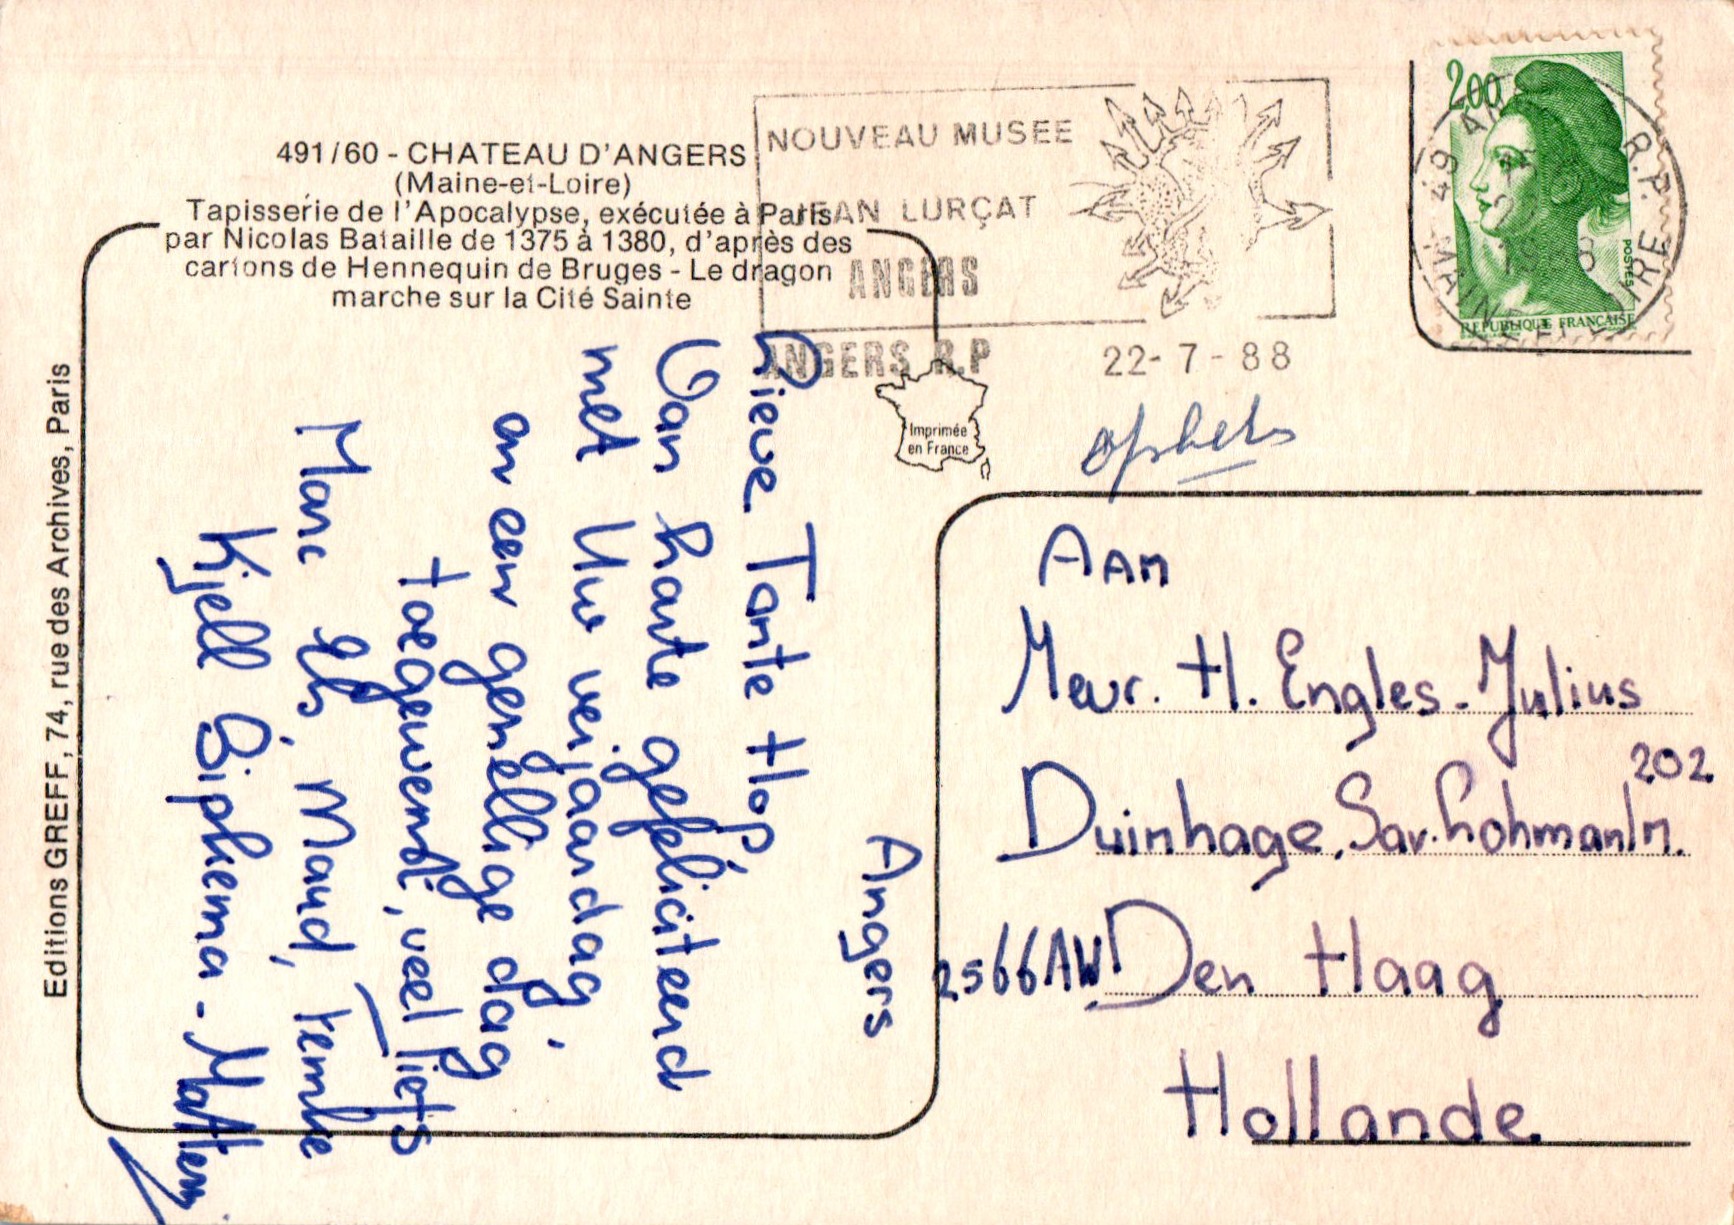 491/60 - CHATEAU D'ANGERS
(Maine-et-Loire)
Tapisserie de l'Apocalypse, exécutée à Paris
par Nicolas Bataille de 1375 à 1380, d'après des
cartons de Hennequin de Bruges - Le dragon
marche sur la Cité Sainte
NOUVEAU MUSEE
JEAN LURÇAT
ANGERS
ANGERS R.P
22-7-88
2,00
POSTES
REPUBLIQUE FRANÇAISE
49 R.P.
MAINE ET LOIRE
Imprimée
en France
Editions GREFF, 74, rue des Archives, Paris
Angers
Lieve Tante Hop,
Van harte gefeliciteerd
met Uw verjaardag,
en een gezellige dag
toegewenst, veel liefs
Marc Els, Maud,
Kjell
Aan
Mevr. H. Engles-Julius
202
Duinhage, Sav. Lohmanln.
2566AW Den Haag
Hollande